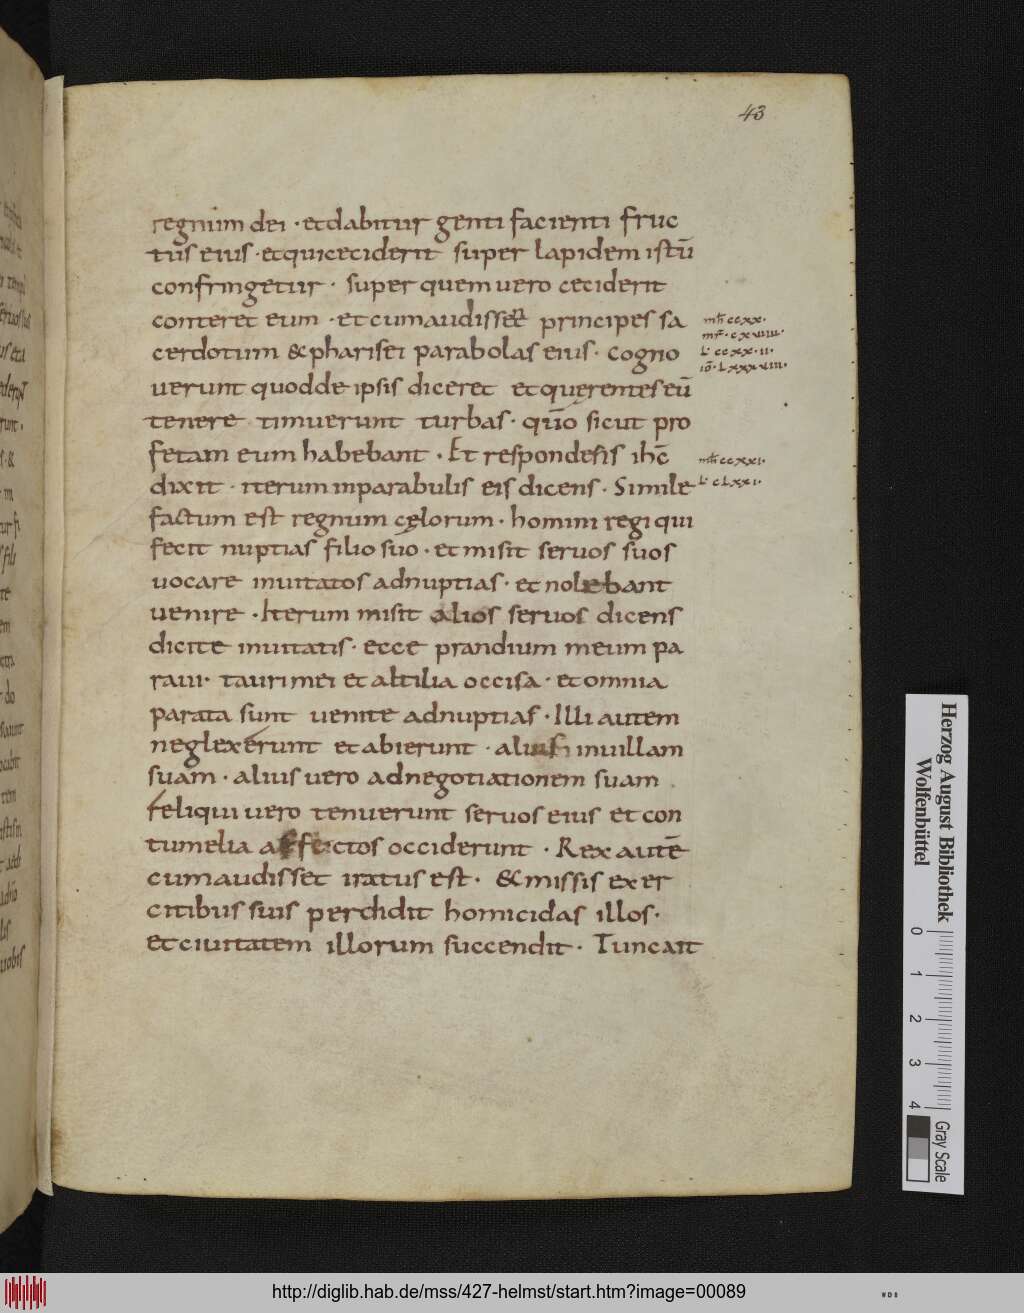 43
regnum dei · et dabitur genti facienti fruc
tus eius · et qui ceciderit super lapidem istū
confringetur · super quem uero ceciderit
conteret eum · et cum audisset principes sa
cerdotum & pharisei parabolas eius · cogno
uerunt quod de ipsis diceret et querentes eū
tenere timuerunt turbas · qūo sicut pro
fetam eum habebant · Et respondesis ihc̄
dixit · iterum in parabulis eis dicens · Simile
factum est regnum cęlorum · homini regi qui
fecit nuptias filio suo · et misit seruos suos
uocare inuitatos ad nuptias · et nolebant
uenire · Iterum misit alios seruos dicens
dicite inuitatis · ecce prandium meum pa
raui · tauri mei et altilia occisa · et omnia
parata sunt uenite ad nuptias · Illi autem
neglexerunt et abierunt · alius in uillam
suam · alius uero ad negotiationem suam
reliqui uero tenuerunt seruos eius et con
tumelia affectos occiderunt · Rex autē
cum audisset iratus est · & missis exer
citibus suis perdidit homicidas illos ·
et ciuitatem illorum succendit · Tunc ait
ccxx ·
cxxuiiii ·
L · ccxx · ii ·
iō · Lxxxuiii ·
ccxxi ·
L · cLxxi ·
Herzog August Bibliothek
Wolfenbüttel
0 1 2 3 4
Gray Scale
http://diglib.hab.de/mss/427-helmst/start.htm?image=00089